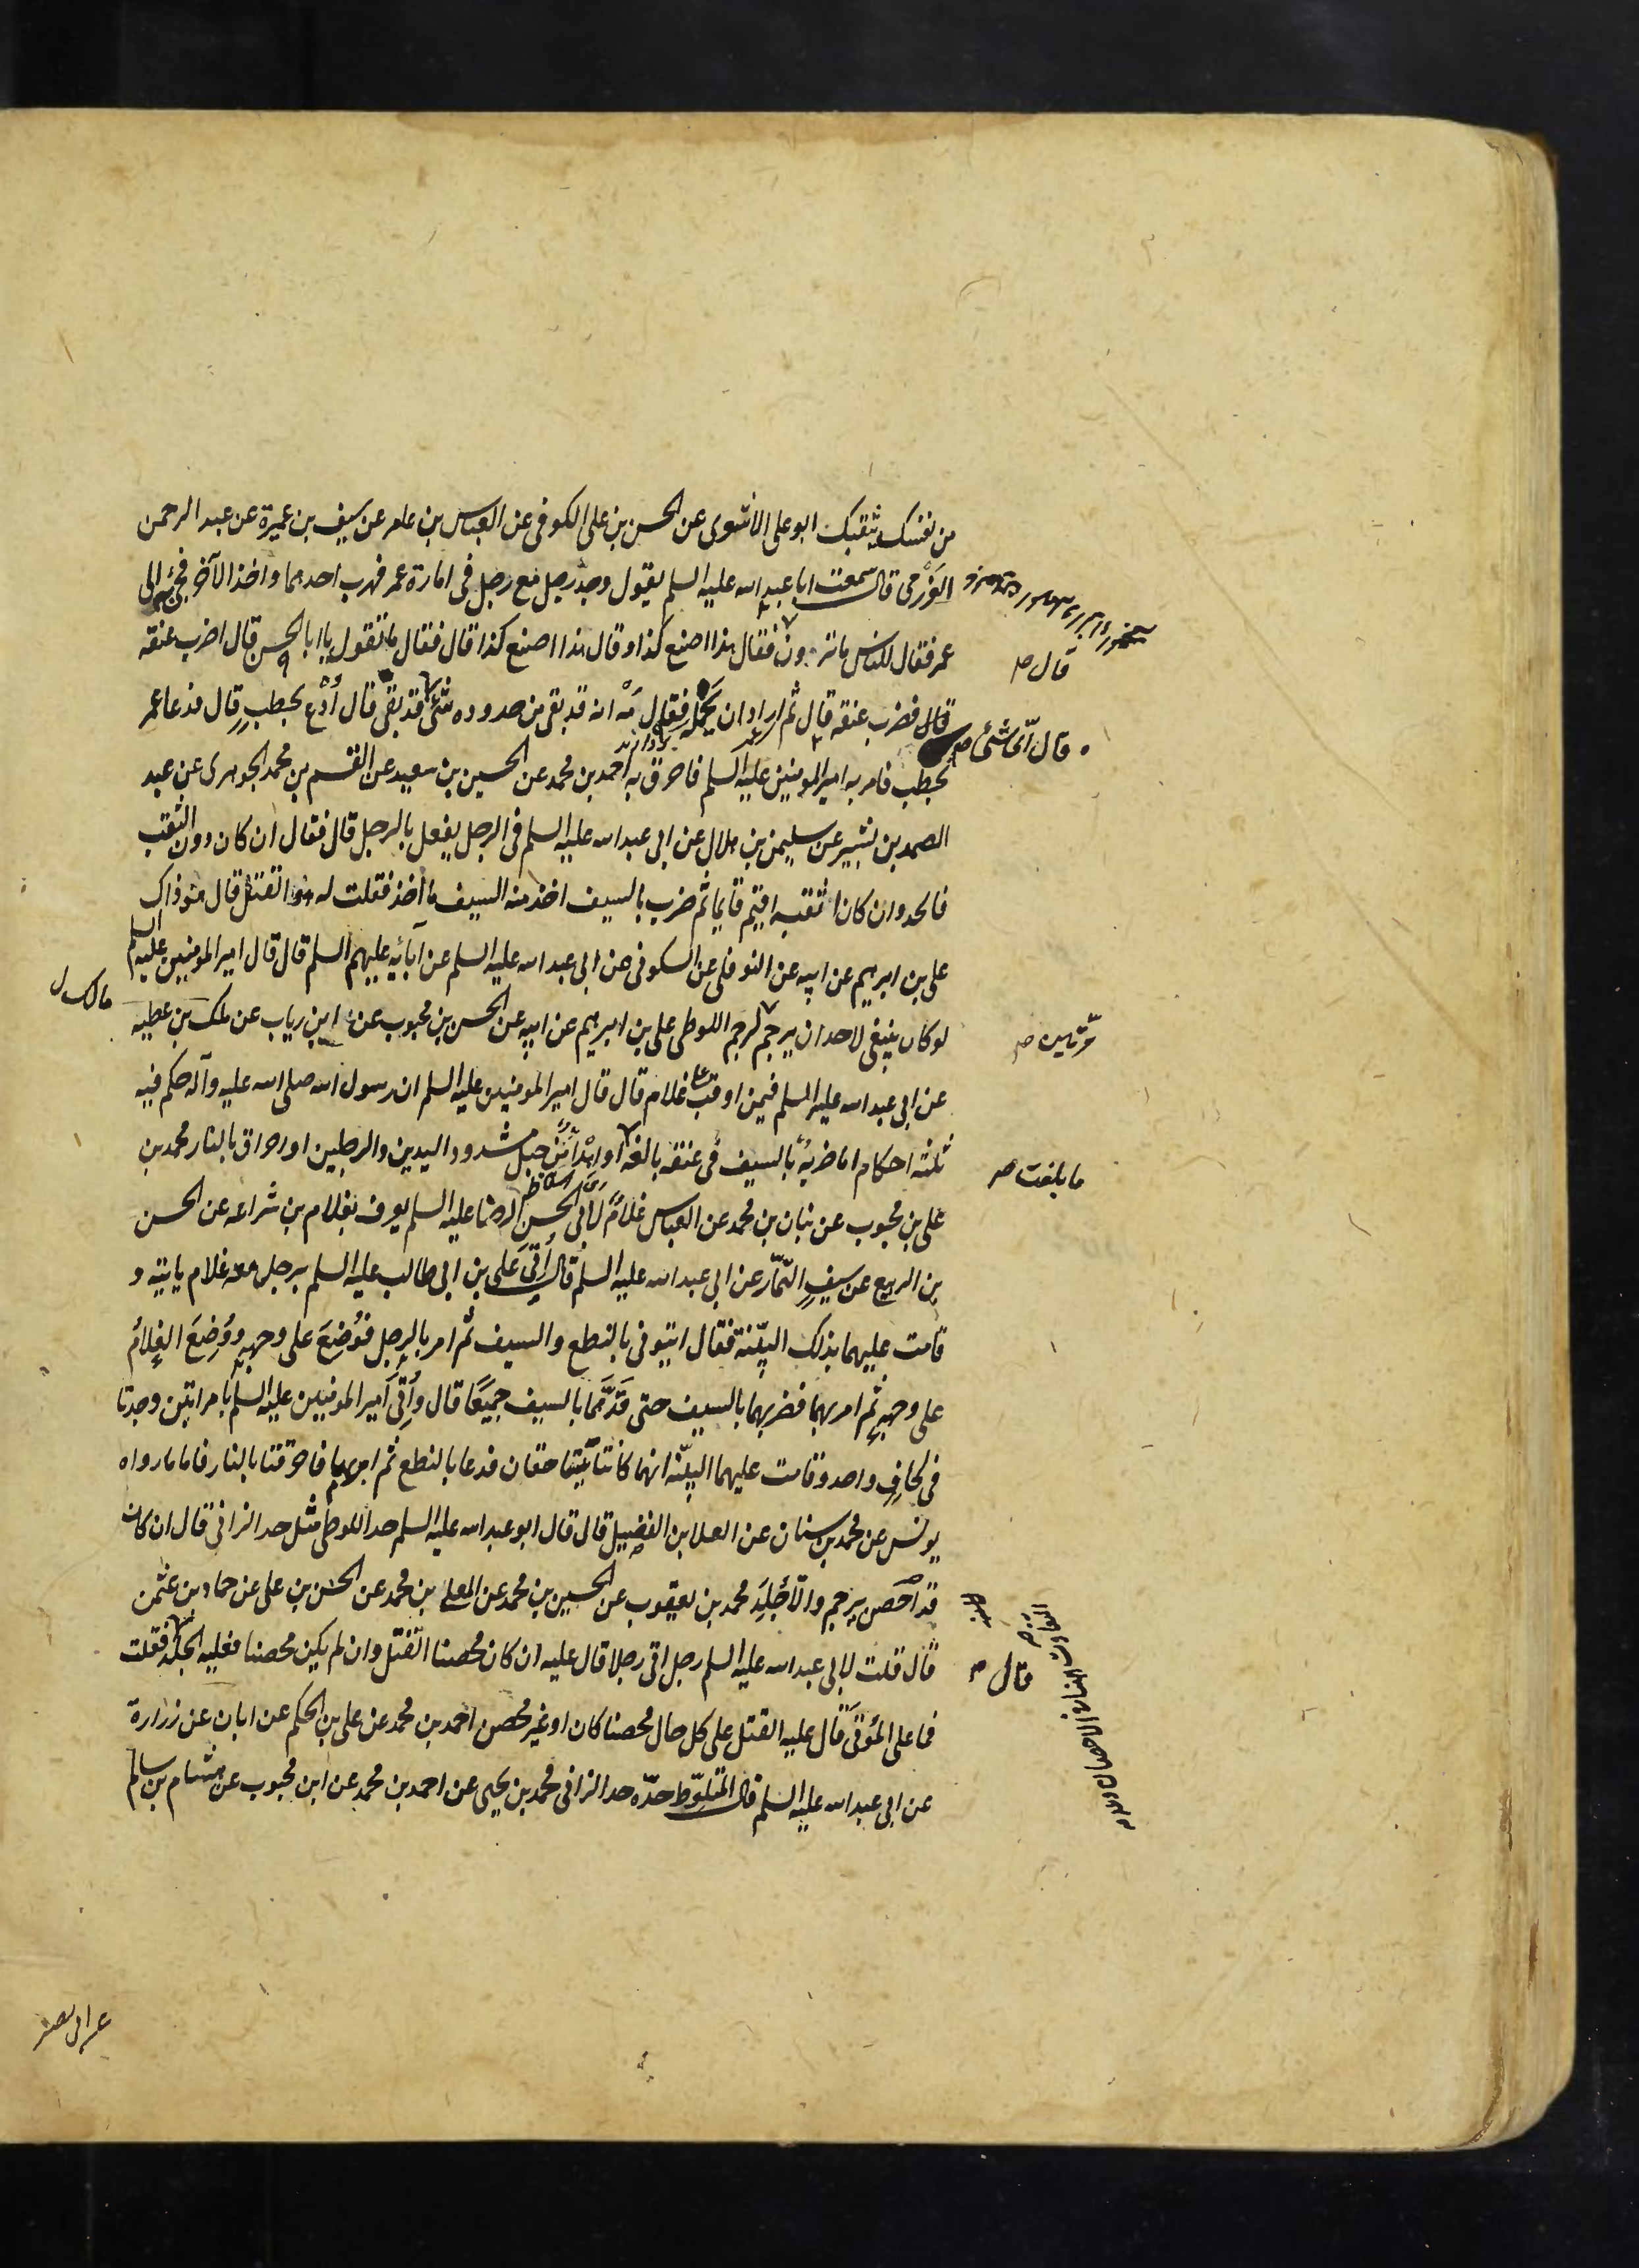 من نفسك بثقبك ابو علي الاشعري عن الحسن بن علي الكوفي عن العباس بن عامر عن سيف بن عميرة عن عبد الرحمن
العَرْزمي قال سمعت ابا عبد الله عليه السلم يقول وجد رجل مع رجل في امارة عمر فهرب احدهما واخذ الآخر فجئ به الى
عمر فقال للناس ما ترون فقال هذا اصنع كذا وقال هذا اصنع كذا قال فقال ما تقول يا ابا الحسن قال اضرب عنقه
قال فضرب عنقه قال ثم اراد ان يحمله فقال مَه انه قد بقى من حدوده شئ قد بقى قال أدع بحطب قال فدعا عمر
بحطب فامر به امير المومنين عليه السلم فاحرق به احمد بن محمد عن الحسين بن سعيد عن القسم بن محمد الجوهرى عن عبد
الصمد بن بشير عن سليمن بن هلال عن ابي عبد الله عليه السلم في الرجل يفعل بالرجل قال فقال ان كان دون الثقب
فالحد وان كان اثقبه اقيم قايما ثم ضرب بالسيف اخذ منه السيف ما أخذ فقلت له هو القتل قال هو ذاك
علي بن ابرهيم عن ابيه عن النوفلي عن السكوني عن ابي عبد الله عليه السلم عن آبائه عليهم السلم قال قال امير المومنين عليه السلم
لو كان ينبغي لاحد ان يرجم لرجم اللوطي علي بن ابرهيم عن ابيه عن الحسن بن محبوب عن ابن رياب عن ملك بن عطيه
عن ابي عبد الله عليه السلم فيمن اوقب على غلام قال قال امير المومنين عليه السلم ان رسول الله صلى الله عليه وآله حكم فيه
ثلثه احكام اما ضربةً بالسيف في عنقه بالغه او اهدأً من جبل مشدود اليدين والرجلين او احراق بالنار محمد بن
علي بن محبوب عن بنان بن محمد عن العباس غلامٌ لابي الحسن الرضا عليه السلم يعرف بغلام بن شراعه عن الحسن
بن الربيع عن سيف التمّار عن ابي عبد الله عليه السلم قال أُتي علي بن ابي طالب عليه السلم برجل معه غلام ياتيه و
قامت عليهما بذلك البيّنة فقال ايتوني بالنطع والسيف ثم امر بالرجل فوُضِعَ على وجهه ووُضِعَ الغلامُ
على وجهه ثم امر بهما فضربهما بالسيف حتى قَدَّهما بالسيف جميعًا قال وأُتي امير المومنين عليه السلم بامراتين وجدتا
في لحافٍ واحد وقامت عليهما البيّنه انهما كانتا تتساحقان فدعا بالنطع ثم امر بهما فاحرقتا بالنار فاما ما رواه
يونس عن محمد بن سنان عن العلا بن الفضيل قال قال ابو عبد الله عليه السلم حد اللوطي مثل حد الزاني قال ان كان
قد احصن يرجم والّا جُلِدَ محمد بن يعقوب عن الحسين بن محمد عن المعلى بن محمد عن الحسن بن علي عن حماد بن عثمن
قال قلت لابي عبد الله عليه السلم رجل اتى رجلا قال عليه ان كان محصنا القتل وان لم يكن محصنا فعليه الجلد فقلت
فما على المؤتَى قال عليه القتل على كل حال محصنا كان او غير محصن احمد بن محمد عن علي بن الحكم عن ابان عن زرارة
عن ابي عبد الله عليه السلم قال المتلوّط حدّه حد الزاني محمد بن يحيى عن احمد بن محمد عن ابن محبوب عن هشام بن سالم
قال ص
قال اىّ شئ ص
مرّتين ص
ما بلغت ص
قال ص
مالك ل